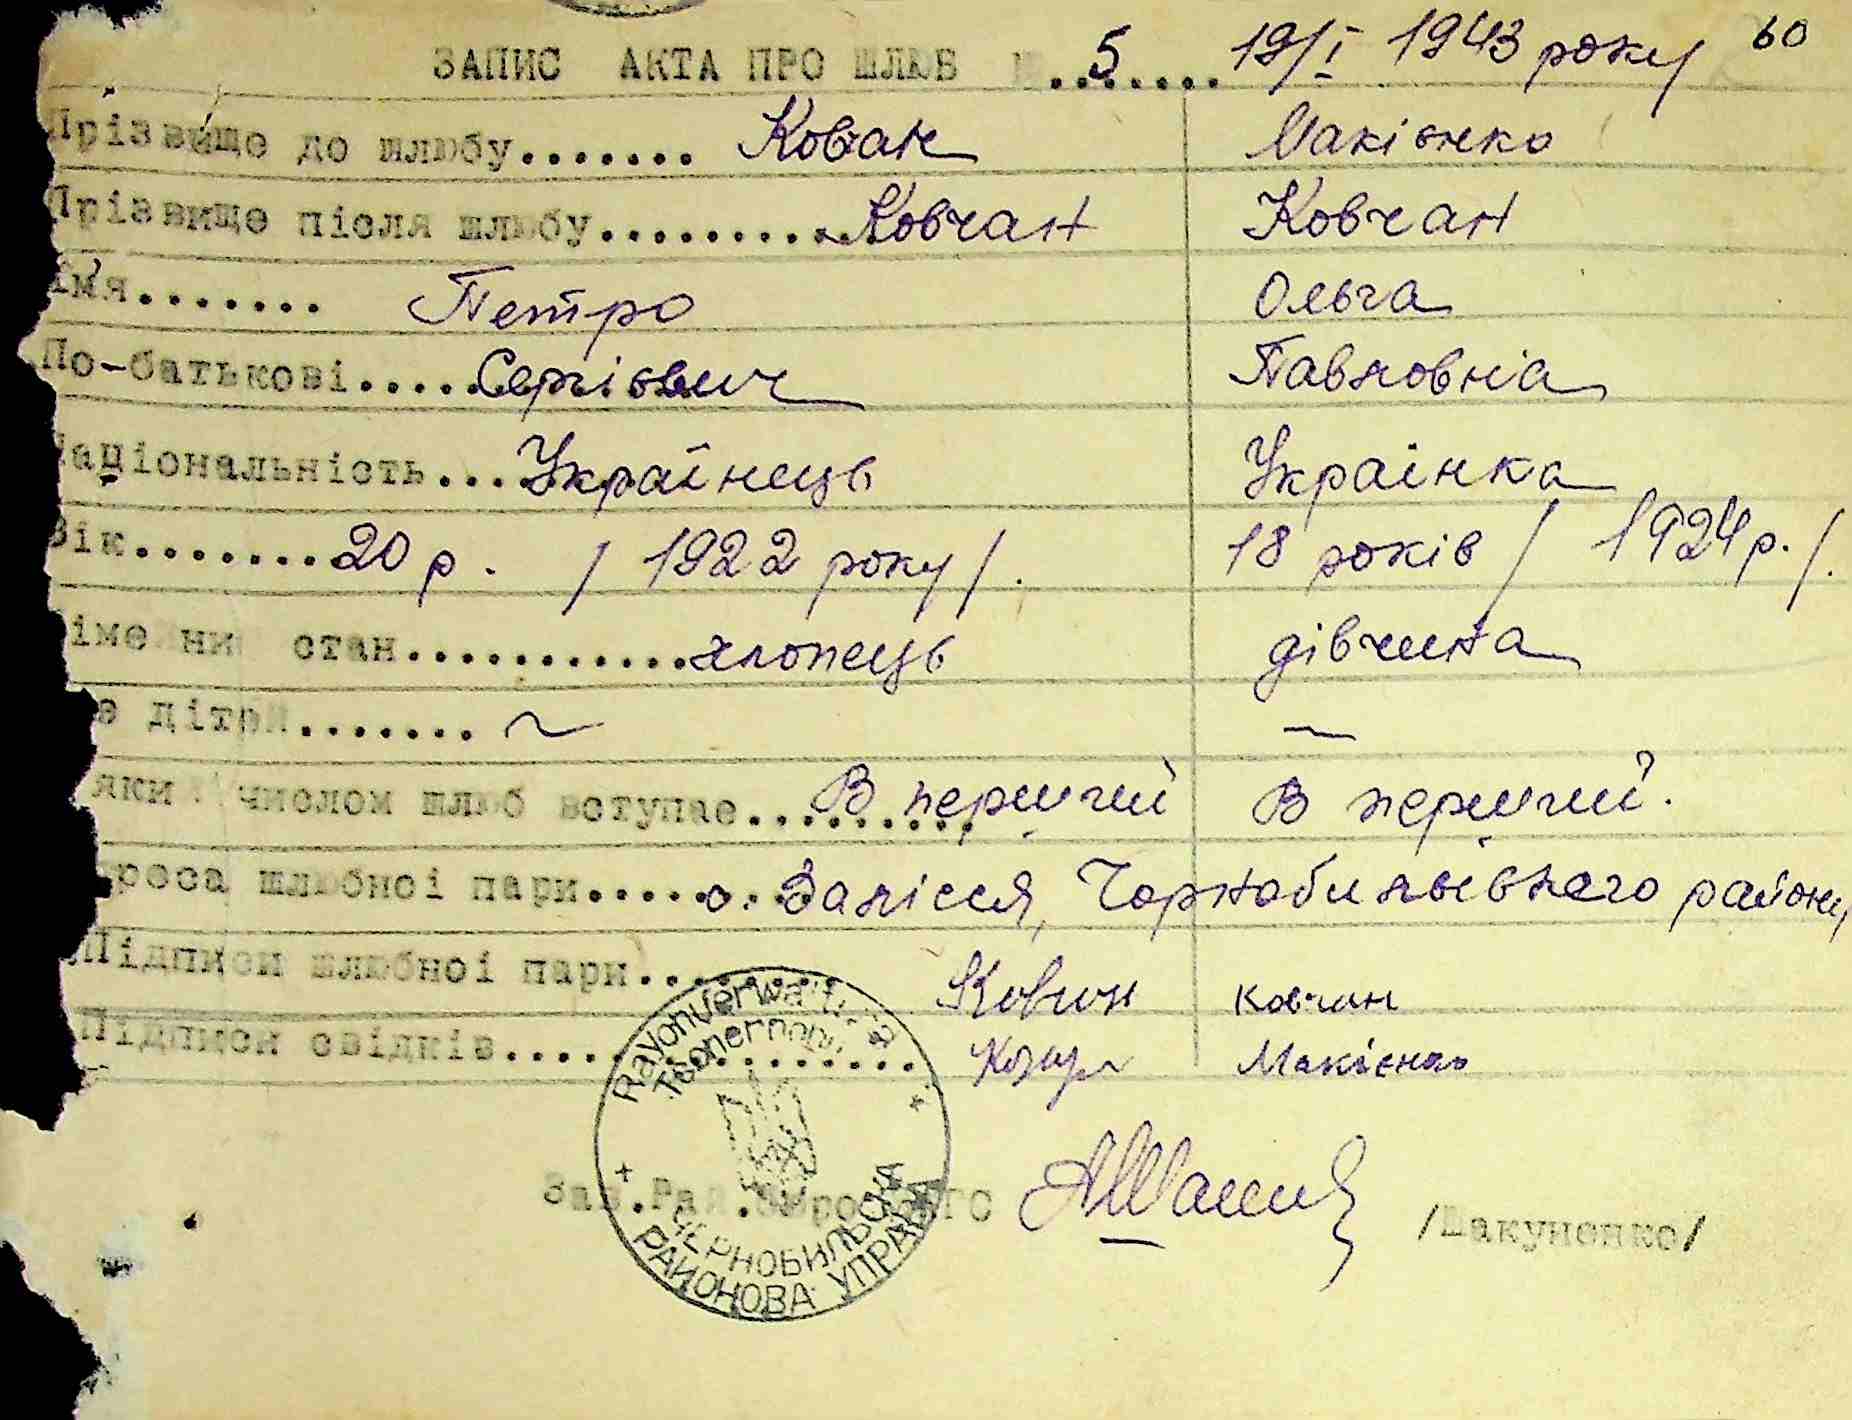 60
ЗАПИС АКТА ПРО ШЛЮБ №..5..... 19/I 1943 року
Прізвище до шлюбу....... Ковчан Макієнко
Прізвище після шлюбу.......... Ковчан Ковчан
Імя....... Петро Ольга
По-батькові..... Сергієвич Павловна
Національність.... Українець Українка
Вік........20 р. / 1922 року/. 18 років / 1924 р./.
стан............хлопець дівчина
дітей....... ~ —
яки числом шлюб вступає.......... В перший В перший.
реса шлюбної пари....... с. Залісся, Чорнобильського району
Підписи шлюбної пари........ Ковчан Ковчан
Підписи свідків................. Макієнко
Rayonverwaltung
Tschernobyl
ЧЕРНОБИЛЬСЬКА
РАЙОНОВА УПРАВА
Зав.Рай.Бюро ЗАГС /Шакуненко/